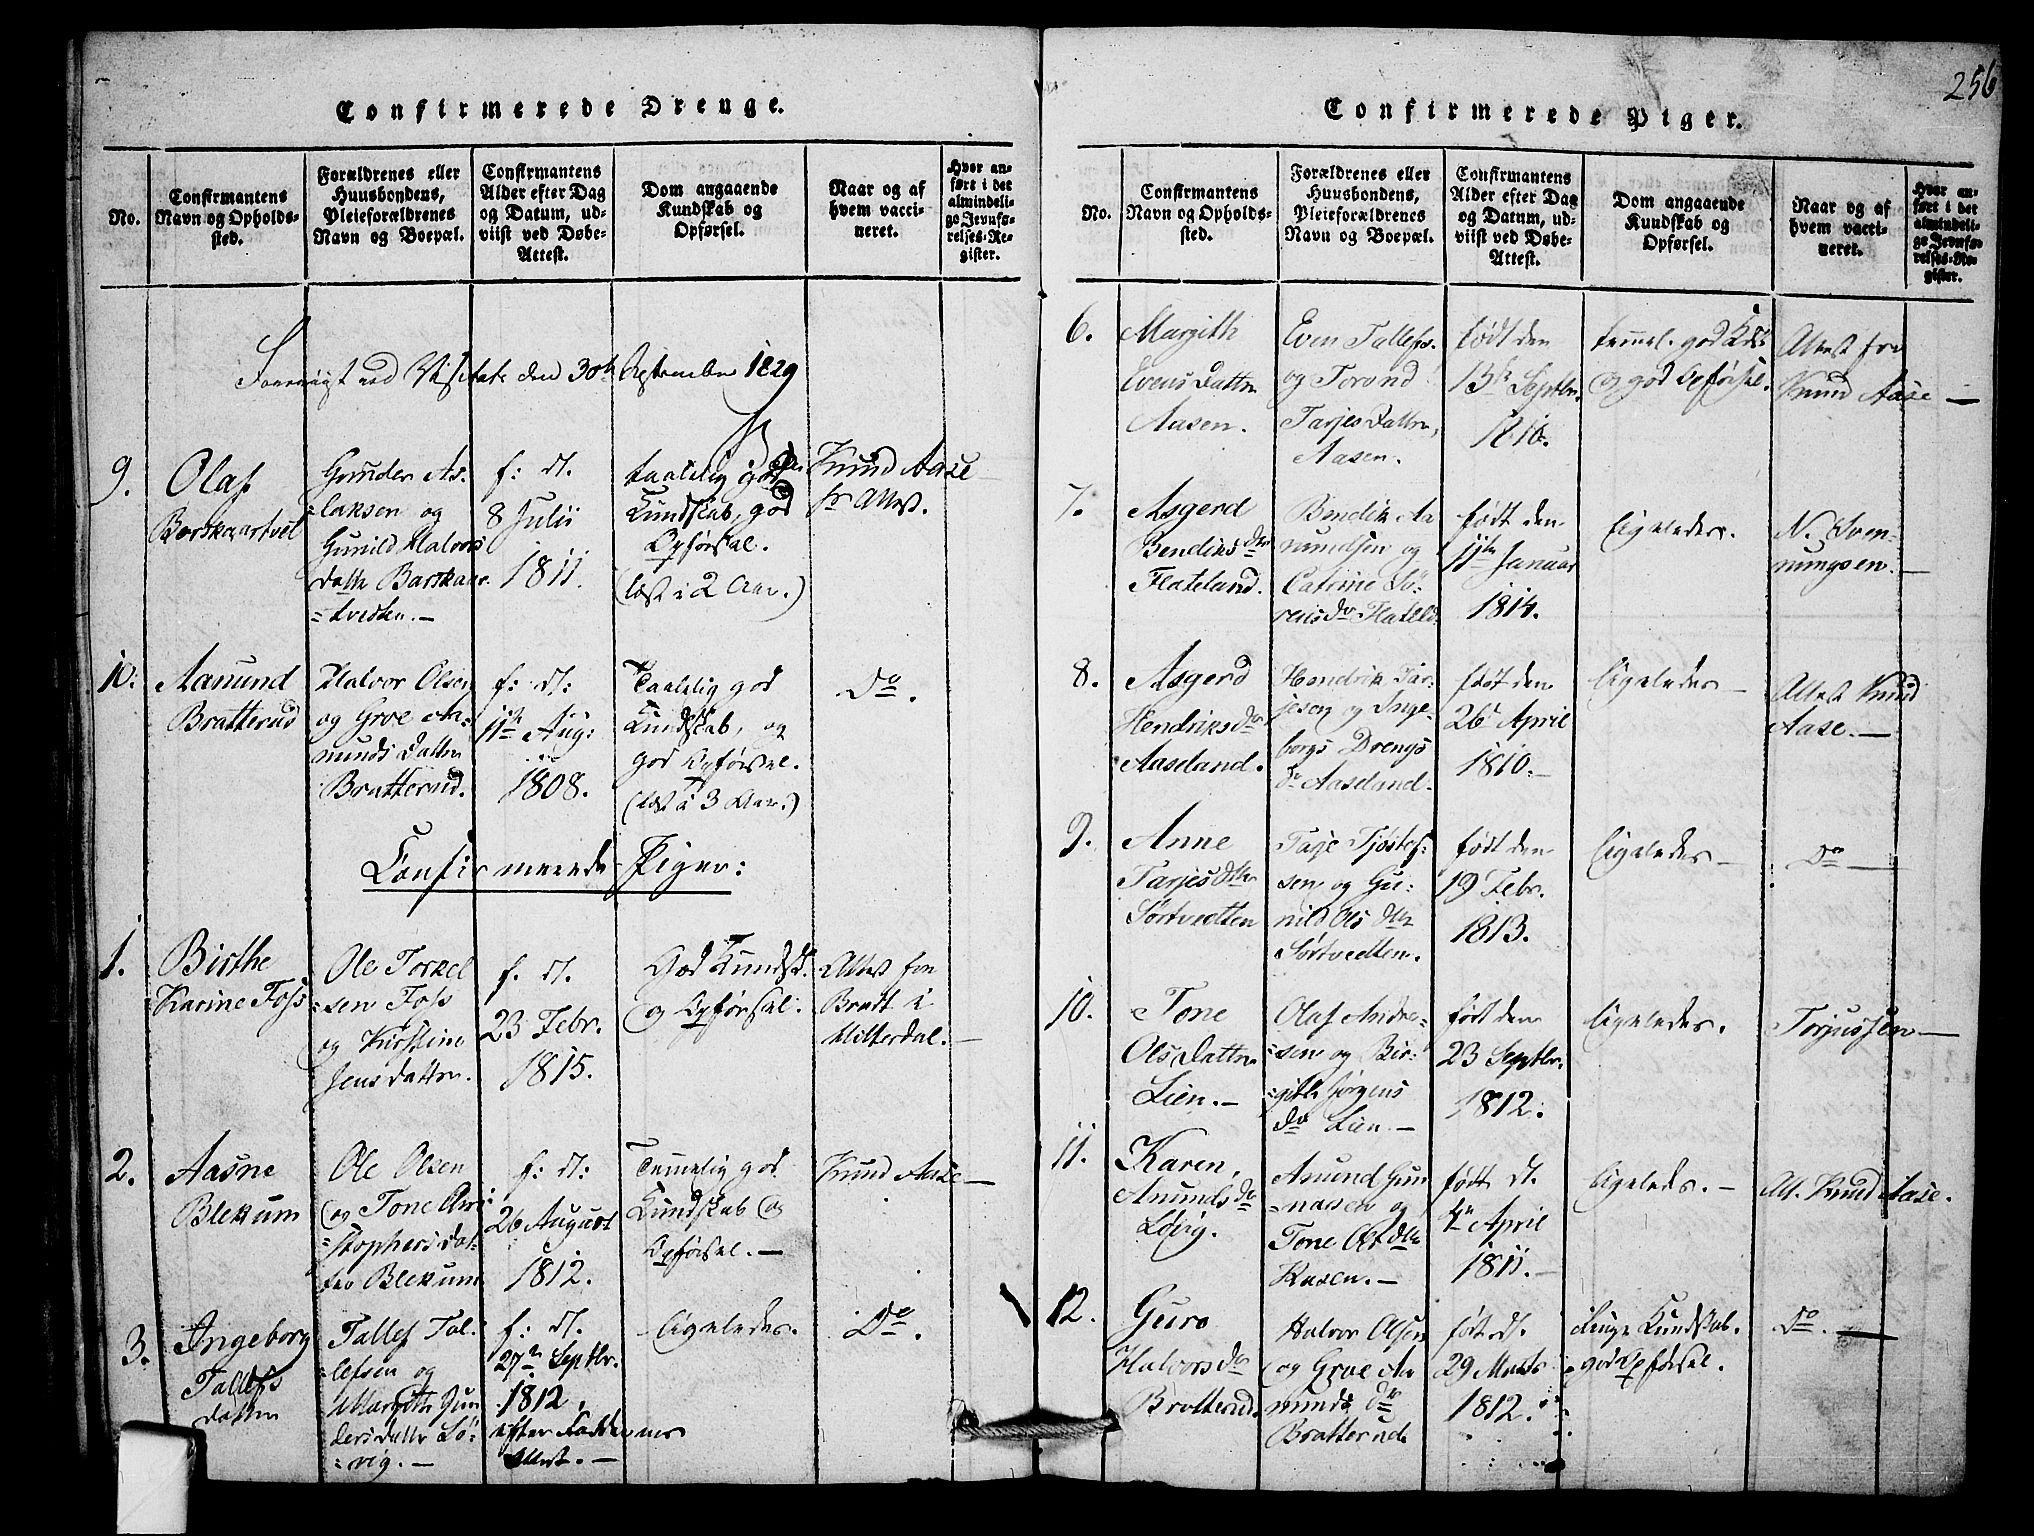 Confirmerede Drenge.
No.
Confirmantens
Navn og Opholds-
sted.
Forældrenes eller
Huusbondens,
Pleieforældrenes
Navn og Boepæl.
Confirmantens
Alder efter Dag
og Datum, ud-
viist ved Døbe-
Attest.
Dom angaaende
Kundskab og
Opførsel.
Naar og af
hvem vacci-
neret.
Hvor an-
ført i det
almindeli-
ge Jevnfø-
relses-Re-
gister.
ved Visitats den 30te September 1829
9.
Olaf
Barskaartvet
Gunder As-
laksen og
Gunild Halvors
datter Barskaar-
=tvedten.—
f: d.
8 Julii
1811.
taalelig god
Kundskab, god
Opførsel.
(læst i 2 Aar.)
Knud Aase
Attest.
10.
Aanund
Bratterud
Halvor Olsen
og Groe A=
munds Datter
Bratterud.
f: d:
11te Aug:
1808.
Taalelig god
Kundskab, og
god Opførsel.
(læst i 3 Aar.)
Do.
Confirmerede Piger:
1.
Birthe
Karine Foss
Ole Torkel
=sen Foss
og Kirstine
Jensdatter.
f. d.
23 Febr.
1815.
God Kundsk.
og Opførsel.
Attest fra
Bradt i
Hitterdal.—
2.
Aasne
Blekum
Ole Olsen
og Tone Chri
=stophersdat-
ter Blekum
f: d:
26 August
1812.
Temmelig god
Kundskab og
Opførsel.—
Knud Aase—
3.
Ingeborg
Tallefs
datter
Tallef Tal-
lefsen og
Margith Gun
dersdatter Lø-
=vig.—
f: d.
27de Septbr.
1812,
efter Faddernes
Attest.—
ligeledes.
Do.
256
Confirmerede Piger.
No.
Confirmantens
Navn og Opholds-
sted.
Forældrenes eller
Huusbondens,
Pleieforældrenes
Navn og Boepæl.
Confirmantens
Alder efter Dag
og Datum, ud-
viist ved Døbe-
Attest.
Dom angaaende
Kundskab og
Opførsel.
Naar og af
hvem vacci-
neret.
Hvor an-
ført i det
almindeli-
ge Jevnfø-
relses-Re-
gister.
6.
Margith
Evens Datter
Aasen.
Even Tallefs.
og Torond
Tarjes Datter,
Aasen.
født den
13de Septbr.
1810.
temmel. god Kdsk
og god Opførsel.
Attest fra
Knud Aase—
7.
Asgerd
Bendiks dtr
Flateland.
Bendik Aa
nundsen og
Catrine Sö-
rens dr Flateld.
født den
11te Januar
1814.
ligeledes.
N. Sven-
nungsen.—
8.
Asgerd
Hendriks dr
Aaseland.
Hendrik Tar-
jesen og Inge-
borg Drengs
dr Aaseland.
født den
26de April
1810.—
ligeledes—
Attest Knud
Aase.—
9.
Anne
Tarjes dtr
Sørtvedten
Tarje Tjøstof-
sen og Gu-
nild Ols dtr
Sørtvedten.
født den
19 Febr.
1813.
ligeledes—
Do—
10.
Tone
Ols Datter
Lien.—
Olaf Andre-
=sen og Bir-
=gith Jörgens
dr Lien.—
født den
23 Septbr.
1812.
ligeledes.
Torjussen—
11.
Karen,
Anunds dr
Lövig.
Anund Gun
=nasen og
Tone Ols dtr
Rasen.—
født d.
4de April
1811.—
ligeleds.—
Att. Knud Aase.
12.
Guro
Halvors dr
Bratterud.
Halvor Olsen
og Groe Aa
munds dr
Bratterud
født d.
29 Marts
1812.
ringe Kundskab.
god Opførsel.
Do.—